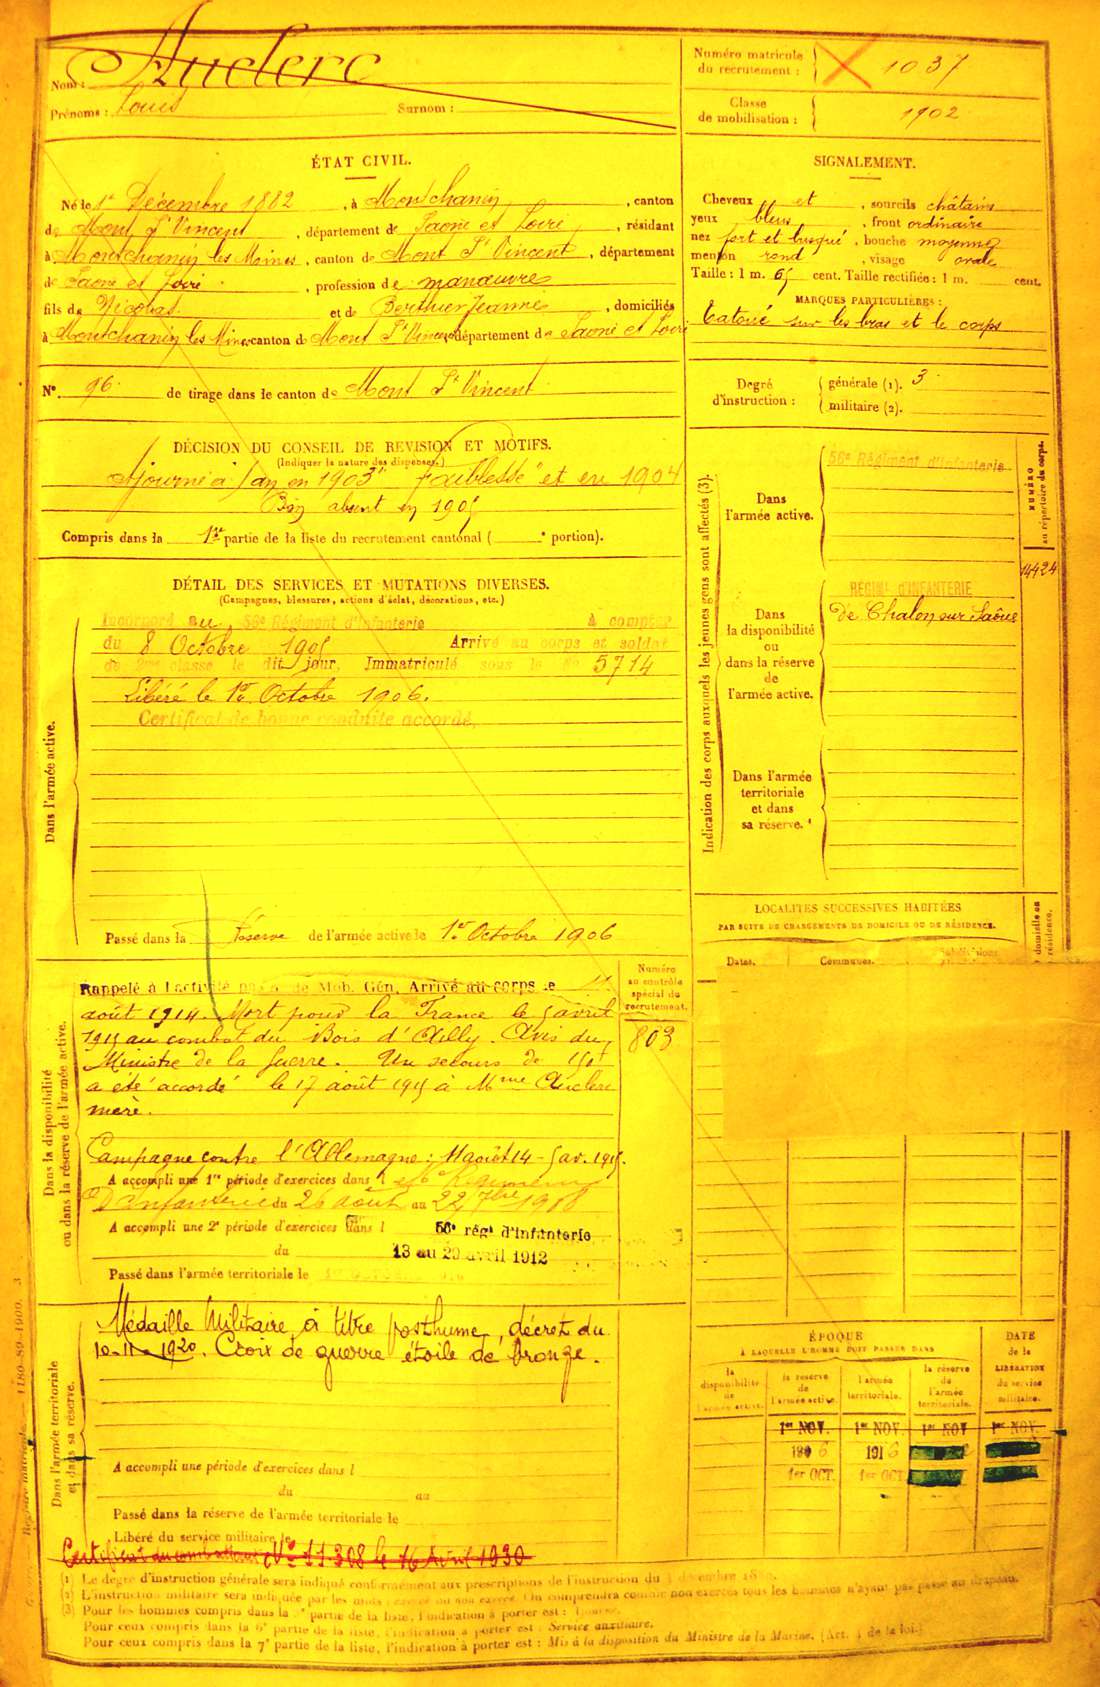 Nom : Auclerc
Prénoms : Louis Surnom :
Numéro matricule
du recrutement : 1037
Classe
de mobilisation : 1902
ÉTAT CIVIL.
Né le 1er Décembre 1882, à Montchanin, canton
de Mont St Vincent, département de Saone et Loire, résidant
à Montchanin les Mines, canton de Mont St Vincent, département
de Saone et Loire, profession de manœuvre
fils de Nicolas et de Berthier Jeanne, domiciliés
à Montchanin les Mines canton de Mont St Vincent département de Saone et Loire
N° 96 de tirage dans le canton de Mont St Vincent
SIGNALEMENT.
Cheveux et, sourcils châtains
yeux bleus, front ordinaire
nez fort et busqué, bouche moyenne
menton rond, visage ovale
Taille : 1 m. 65 cent. Taille rectifiée : 1 m. cent.
MARQUES PARTICULIÈRES :
Tatoué sur les bras et le corps
Degré
d'instruction :
générale (1). 3
militaire (2).
DÉCISION DU CONSEIL DE REVISION ET MOTIFS.
(Indiquer la nature des dispenses.)
Ajourné à 1 an en 1903 "faiblesse" et en 1904
Bon absent en 1905
Compris dans la 1re partie de la liste du recrutement cantonal ( e portion).
DÉTAIL DES SERVICES ET MUTATIONS DIVERSES.
(Campagnes, blessures, actions d'éclat, décorations, etc.)
Dans l'armée active.
Incorporé au 56e Régiment d'Infanterie à compter
du 8 Octobre 1905 Arrivé au corps et soldat
de 2me classe le dit jour, Immatriculé sous le No 5714
Libéré le 1er Octobre 1906.
Certificat de bonne conduite accordé.
Passé dans la réserve de l'armée active le 1er Octobre 1906
Indication des corps auxquels les jeunes gens sont affectés (3).
NUMÉRO
au répertoire du corps.
Dans
l'armée active.
56e Régiment d'Infanterie
Dans
la disponibilité
ou
dans la réserve
de
l'armée active.
RÉGIMt D'INFANTERIE
de Chalon sur Saône
14424
Dans l'armée
territoriale
et dans
sa réserve.
LOCALITÉS SUCCESSIVES HABITÉES
PAR SUITE DE CHANGEMENTS DE DOMICILE OU DE RÉSIDENCE.
Dates. Communes. Subdivisions
domicile ou
résidence.
Dans la disponibilité
ou dans la réserve de l'armée active.
Numéro
au contrôle
spécial du
recrutement.
803
Rappelé à l'activité de Mob. Gén. Arrivé au corps le 11
août 1914. Mort pour la France le 5 avril
1915 au combat du Bois d'Ailly. Avis du
Ministre de la Guerre. Un secours de 150f
a été accordé le 17 août 1915 à Mme Auclerc
mère.
Campagne contre l'Allemagne : 11 août 14 - 5 av. 1915.
A accompli une 1re période d'exercices dans l 56e Régiment
d'Infanterie du 26 août au 22 7bre 1908
A accompli une 2e période d'exercices dans l 56e régt d'infanterie
du 13 au 29 avril 1912
Passé dans l'armée territoriale le
Dans l'armée territoriale
et dans sa réserve.
Médaille Militaire à titre posthume, décret du
10-11-1920. Croix de guerre étoile de bronze.
A accompli une période d'exercices dans l
du au
Passé dans la réserve de l'armée territoriale le
Libéré du service militaire le
Certificat du combattant No 11.308 le 16 Avril 1930
ÉPOQUE
À LAQUELLE L'HOMME DOIT PASSER DANS
DATE
de la
LIBÉRATION
du service
militaire.
la
disponibilité
de
l'armée active.
la réserve
de
l'armée active.
l'armée
territoriale.
la réserve
de
l'armée
territoriale.
1er NOV. 1er NOV. 1er NOV 1er NOV.
1906 1916
1er OCT. 1er OCT
Registre matricule. — 1180-89-1900.
(1) Le degré d'instruction générale sera indiqué conformément aux prescriptions de l'instruction du
(2) L'instruction militaire sera indiquée par les mots : exercé ou non exercé. On comprendra comme non exercés tous les hommes n'ayant pas passé au drapeau.
(3) Pour les hommes compris dans la partie de la liste, l'indication à porter est :
Pour ceux compris dans la 6e partie de la liste, l'indication à porter est : Service auxiliaire.
Pour ceux compris dans la 7e partie de la liste, l'indication à porter est : Mis à la disposition du Ministre de la Marine. (Art. 4 de la loi.)